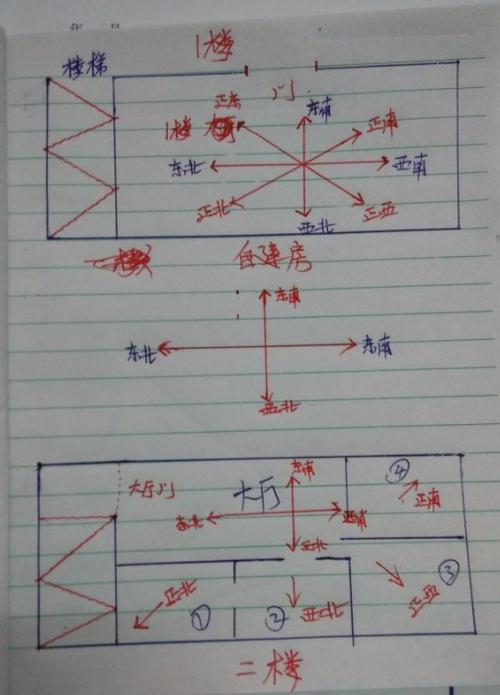 1楼
楼梯
门
正东
东南
正南
1楼
东北
西南
正北
西北
正西
自建房
东南
东北
东南
西北
大厅门
大厅
东南
④
正南
东北
西南
西北
③
正北
①
②
西北
正西
二楼